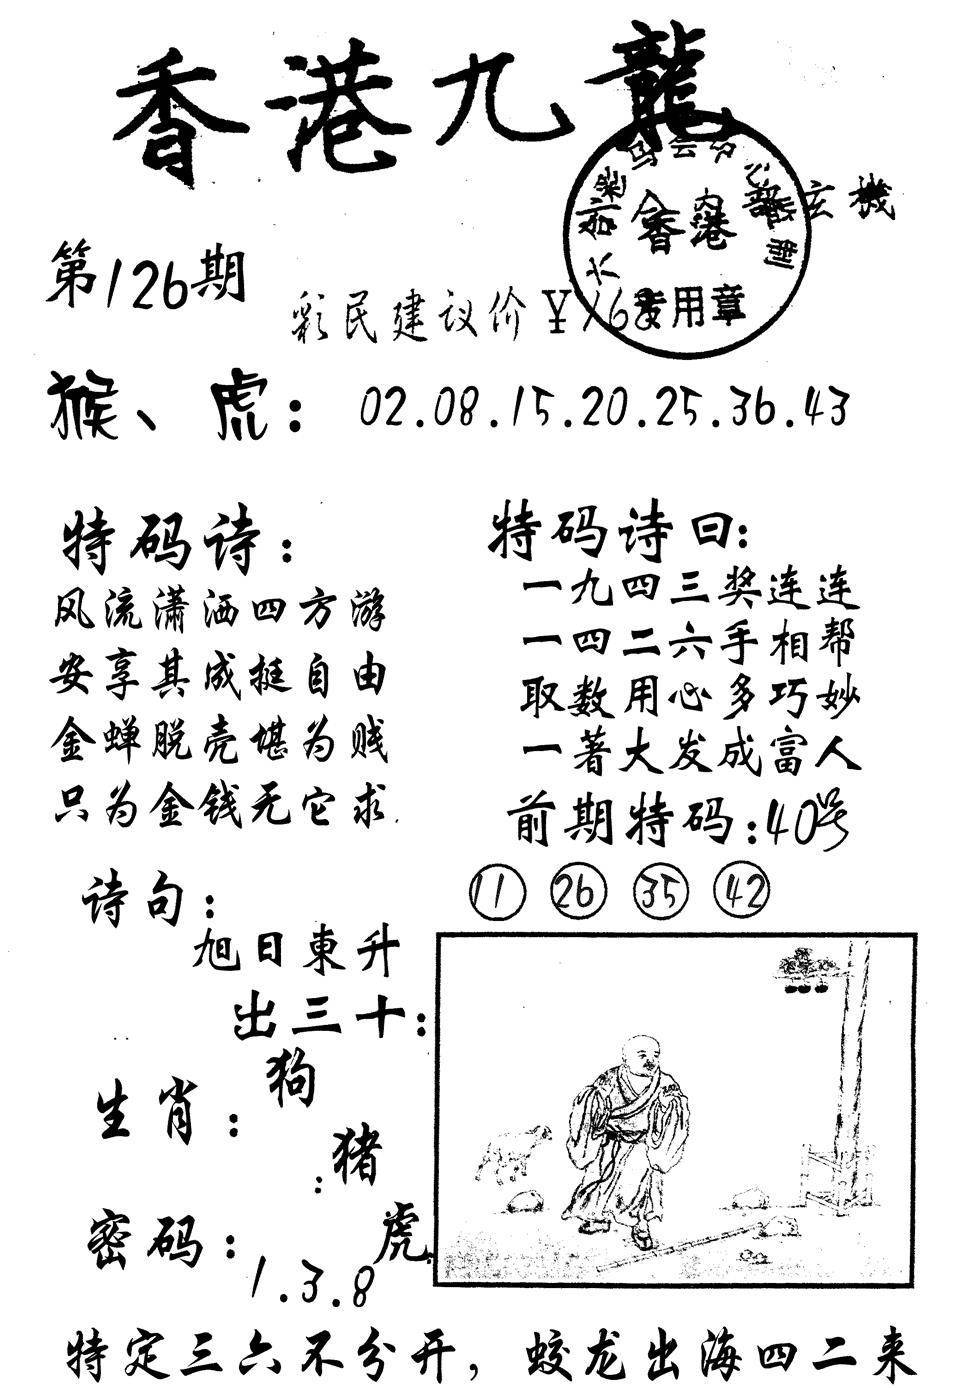 香港九龍
香港
专用章
玄機
第126期
彩民建议价¥168
猴、虎：02.08.15.20.25.36.43
特码诗：
风流潇洒四方游
安享其成挺自由
金蝉脱壳堪为贱
只为金钱无它求
特码诗曰：
一九四三奖连连
一四二六手相帮
取数用心多巧妙
一著大发成富人
前期特码：40号
11 26 35 42
诗句：
旭日東升
出三十：
生肖：
狗
猪
虎
密码：
1.3.8
特定三六不分开，蛟龙出海四二来